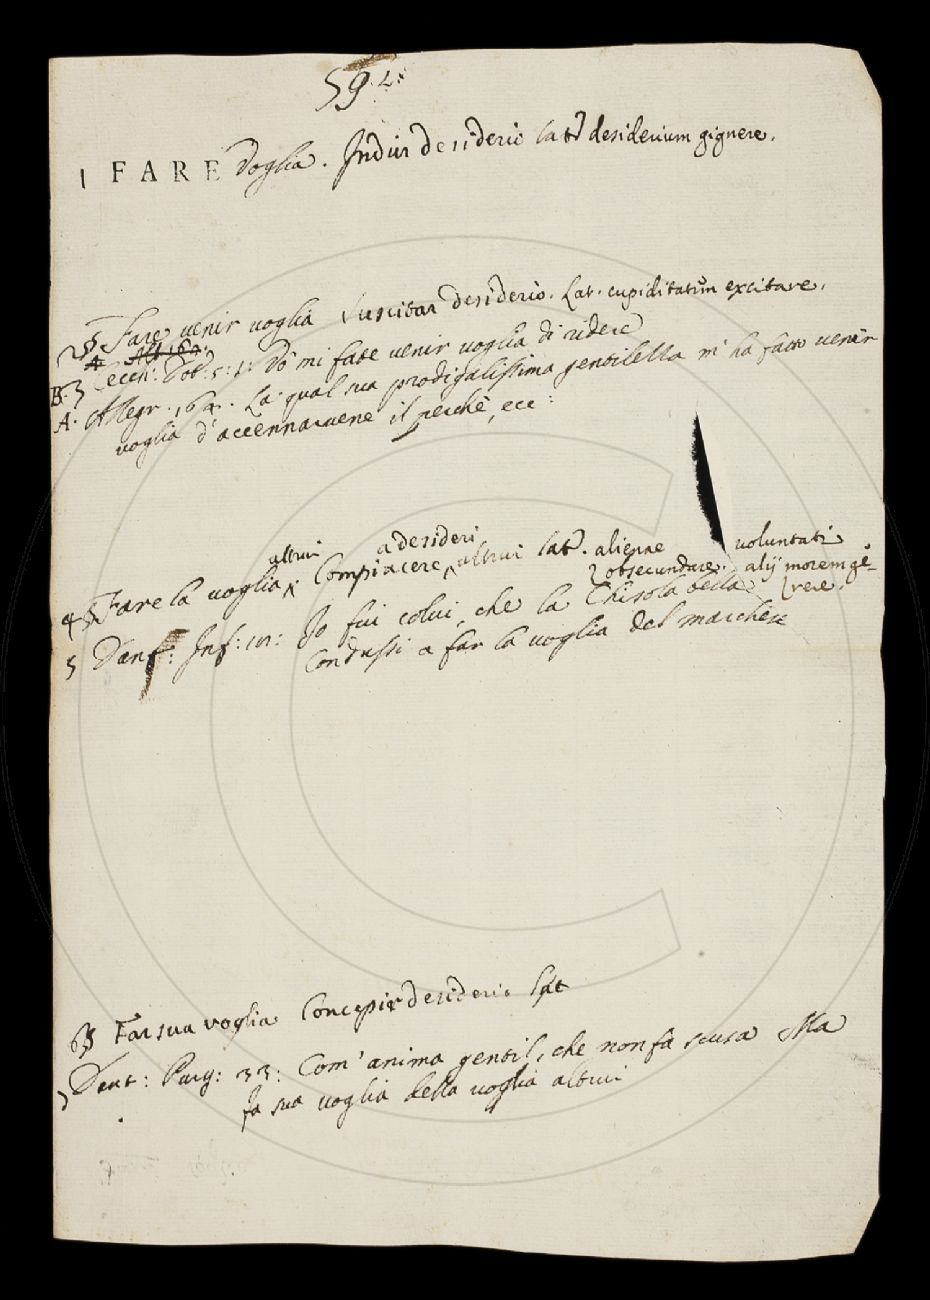 59.
1 FARE Voglia. Indur desiderio lat. desiderium gignere.
2§ Fare venir voglia Suscitar desiderio. Lat. cupiditatem excitare.
B. 3 Cecch: Dot: 5: 1: Vò mi fate venir voglia di ridere
A. Allegr. 164. La qual sua prodigalissima gentilella m'ha fatto venir
voglia d'accennarvene il perchè, ecc:
altrui a desideri
4§ Fare la voglia Compiacere altrui lat. alienae voluntati
obsecundare. alij morem ge-
rere.
5 Dant: Inf: 18: Io fui colui, che la Ghisola bella
Condussi a far la voglia del marchese
6§ Far sua voglia Concepir desiderio lat
7 Dant: Purg: 33: Com'anima gentil, che non fà scusa Ma
fa sua voglia della voglia altrui